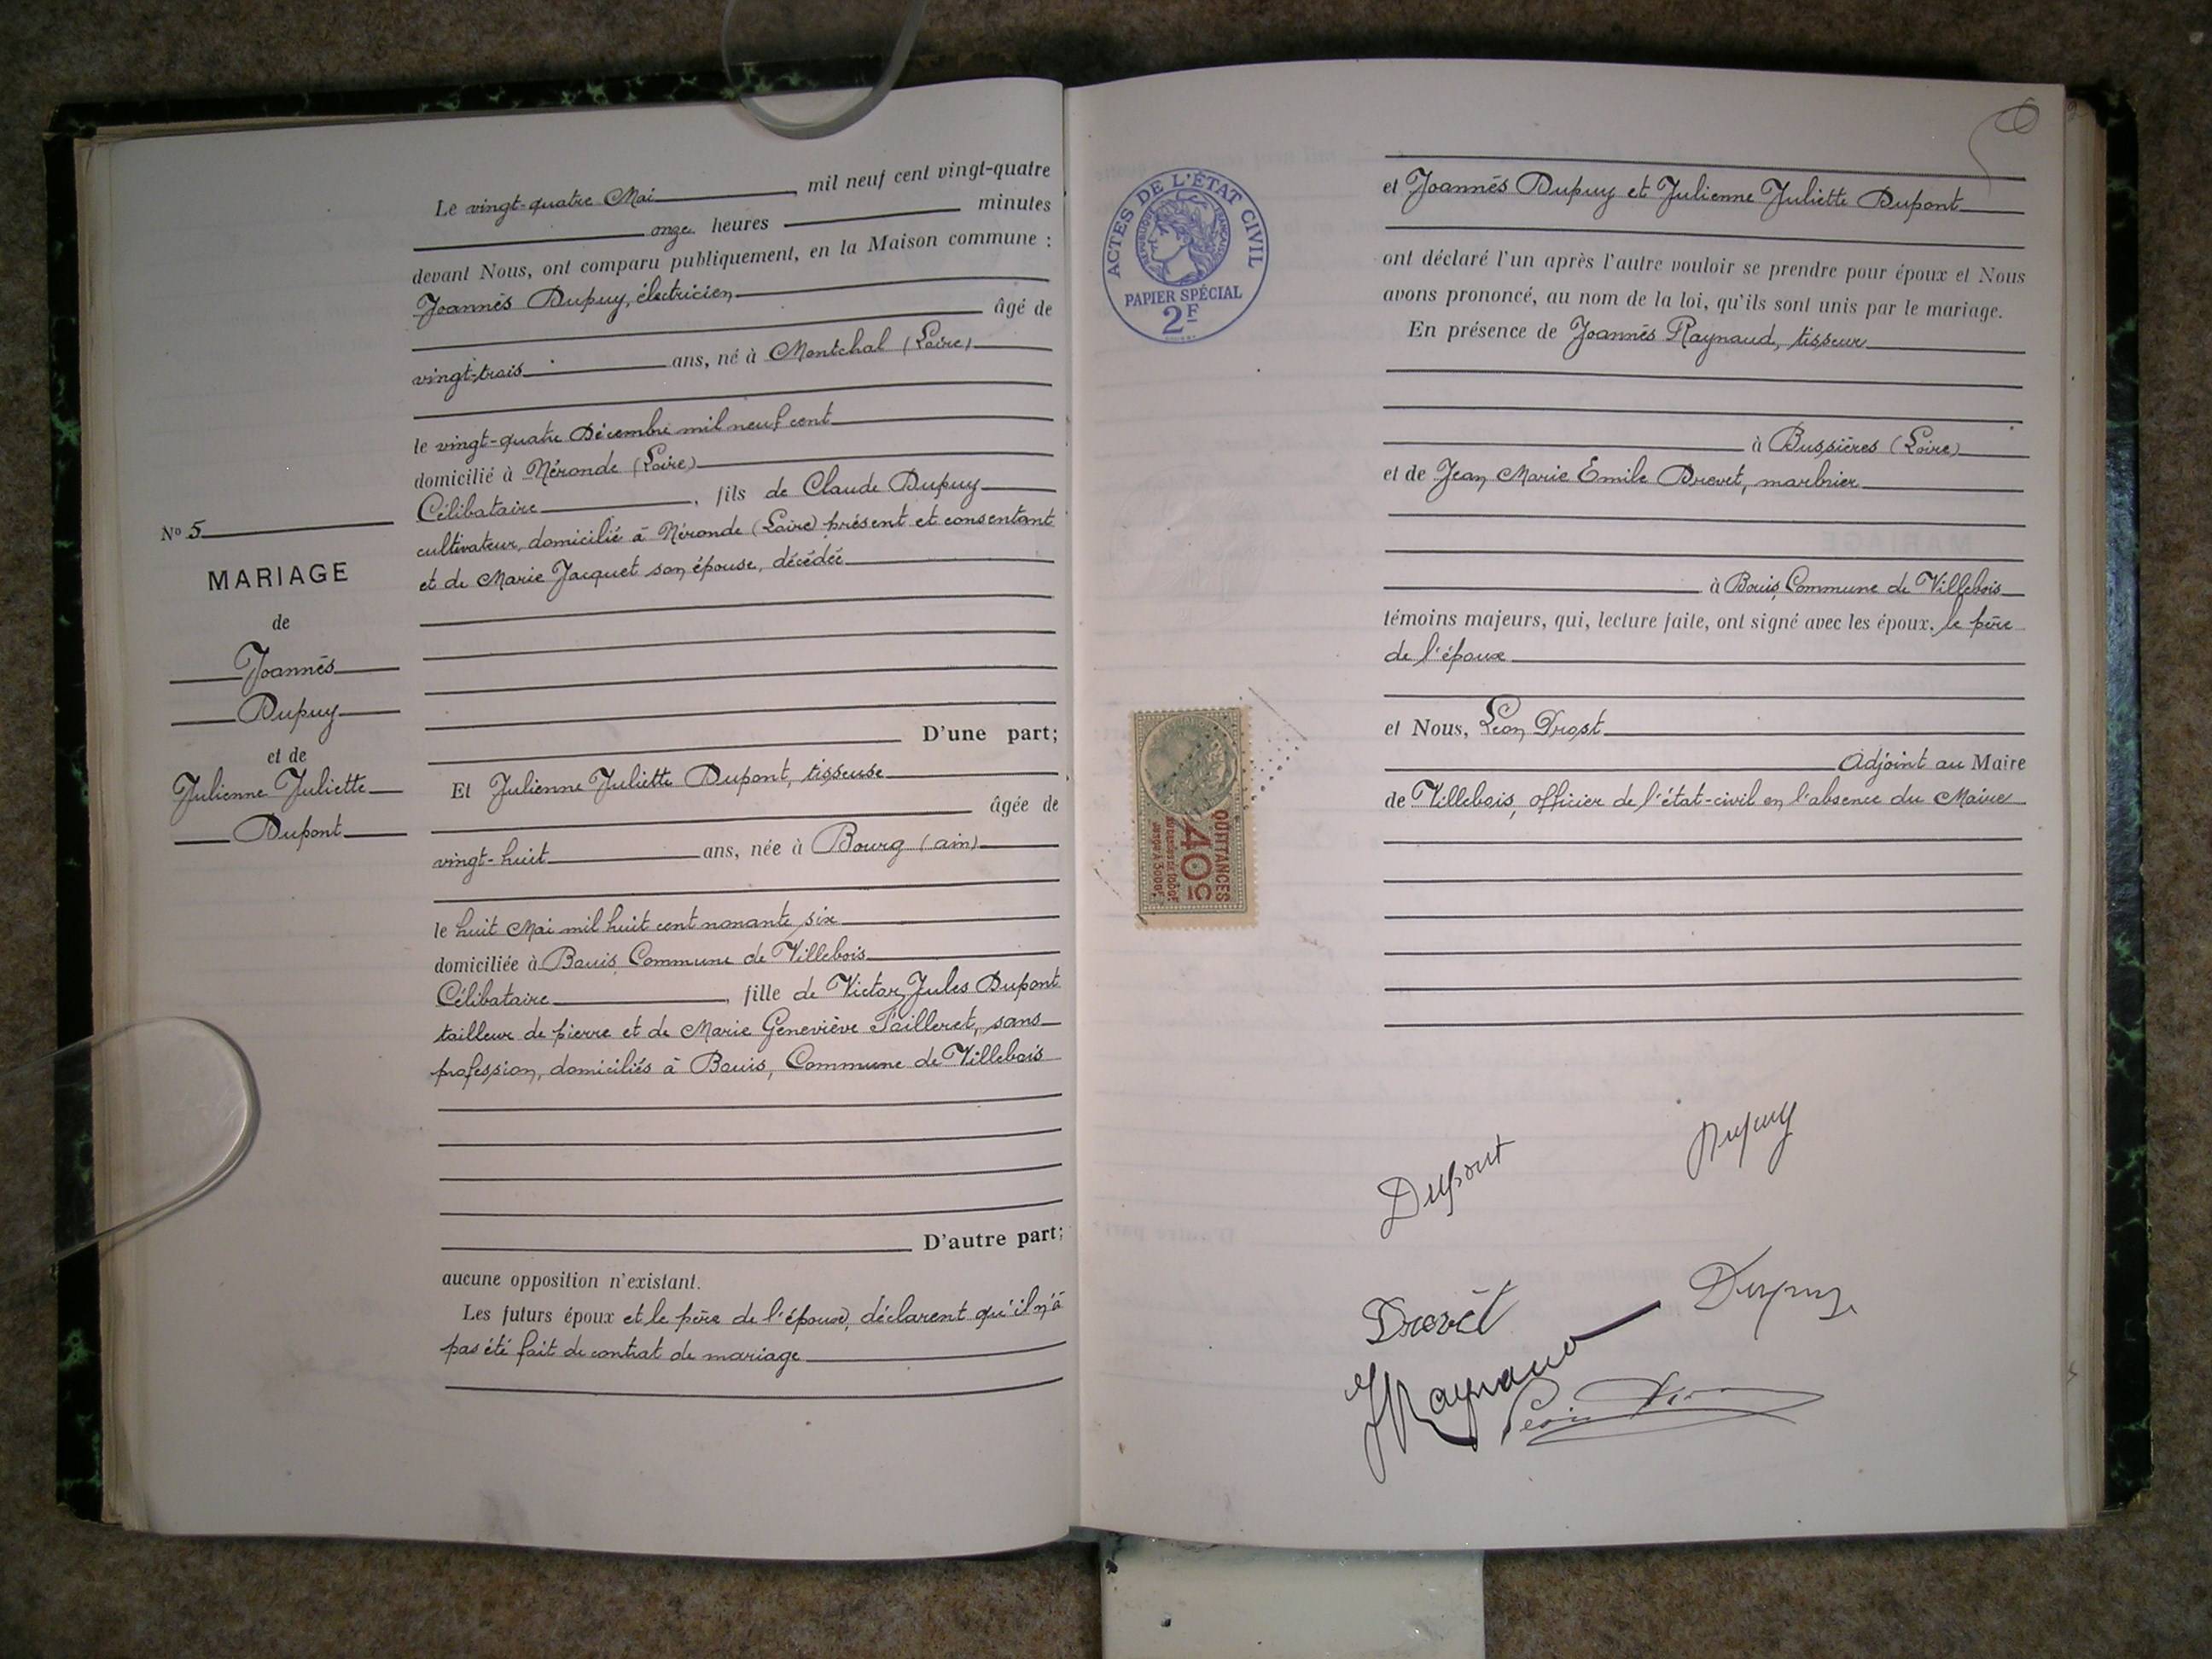 Le vingt-quatre Mai, mil neuf cent vingt-quatre
onze heures minutes
devant Nous, ont comparu publiquement, en la Maison commune :
Joannès Dupuy, électricien
âgé de
vingt-trois ans, né à Montchal (Loire)
le vingt-quatre Décembre mil neuf cent
domicilié à Néronde (Loire)
Célibataire, fils de Claude Dupuy
cultivateur, domicilié à Néronde (Loire) présent et consentant
et de Marie Jacquet son épouse, décédée
D'une part;
Nº 5
MARIAGE
de
Joannès
Dupuy
et de
Julienne Juliette
Dupont
Et Julienne Juliette Dupont, tisseuse
âgée de
vingt-huit ans, née à Bourg (ain)
le huit Mai mil huit cent nonante six
domiciliée à Bouis Commune de Villebois
Célibataire, fille de Victor Jules Dupont
tailleur de pierre et de Marie Geneviève Tailleret, sans
profession, domiciliés à Bouis, Commune de Villebois
D'autre part;
aucune opposition n'existant.
Les futurs époux et le père de l'époux, déclarent qu'il n'a
pas été fait de contrat de mariage
ACTES DE L'ÉTAT CIVIL
RÉPUBLIQUE FRANÇAISE
PAPIER SPÉCIAL
2F
et Joannès Dupuy et Julienne Juliette Dupont
ont déclaré l'un après l'autre vouloir se prendre pour époux et Nous
avons prononcé, au nom de la loi, qu'ils sont unis par le mariage.
En présence de Joannès Raynaud, tisseur
à Bussières (Loire)
et de Jean Marie Emile Drevet, marbrier
à Bouis Commune de Villebois
témoins majeurs, qui, lecture faite, ont signé avec les époux, le père
de l'époux
et Nous, Léon Drost
Adjoint au Maire
de Villebois, officier de l'état-civil en l'absence du Maire
QUITTANCES
40c
Dupont
Dupuy
Drevet
Dupuy
JRaynaud
Léon